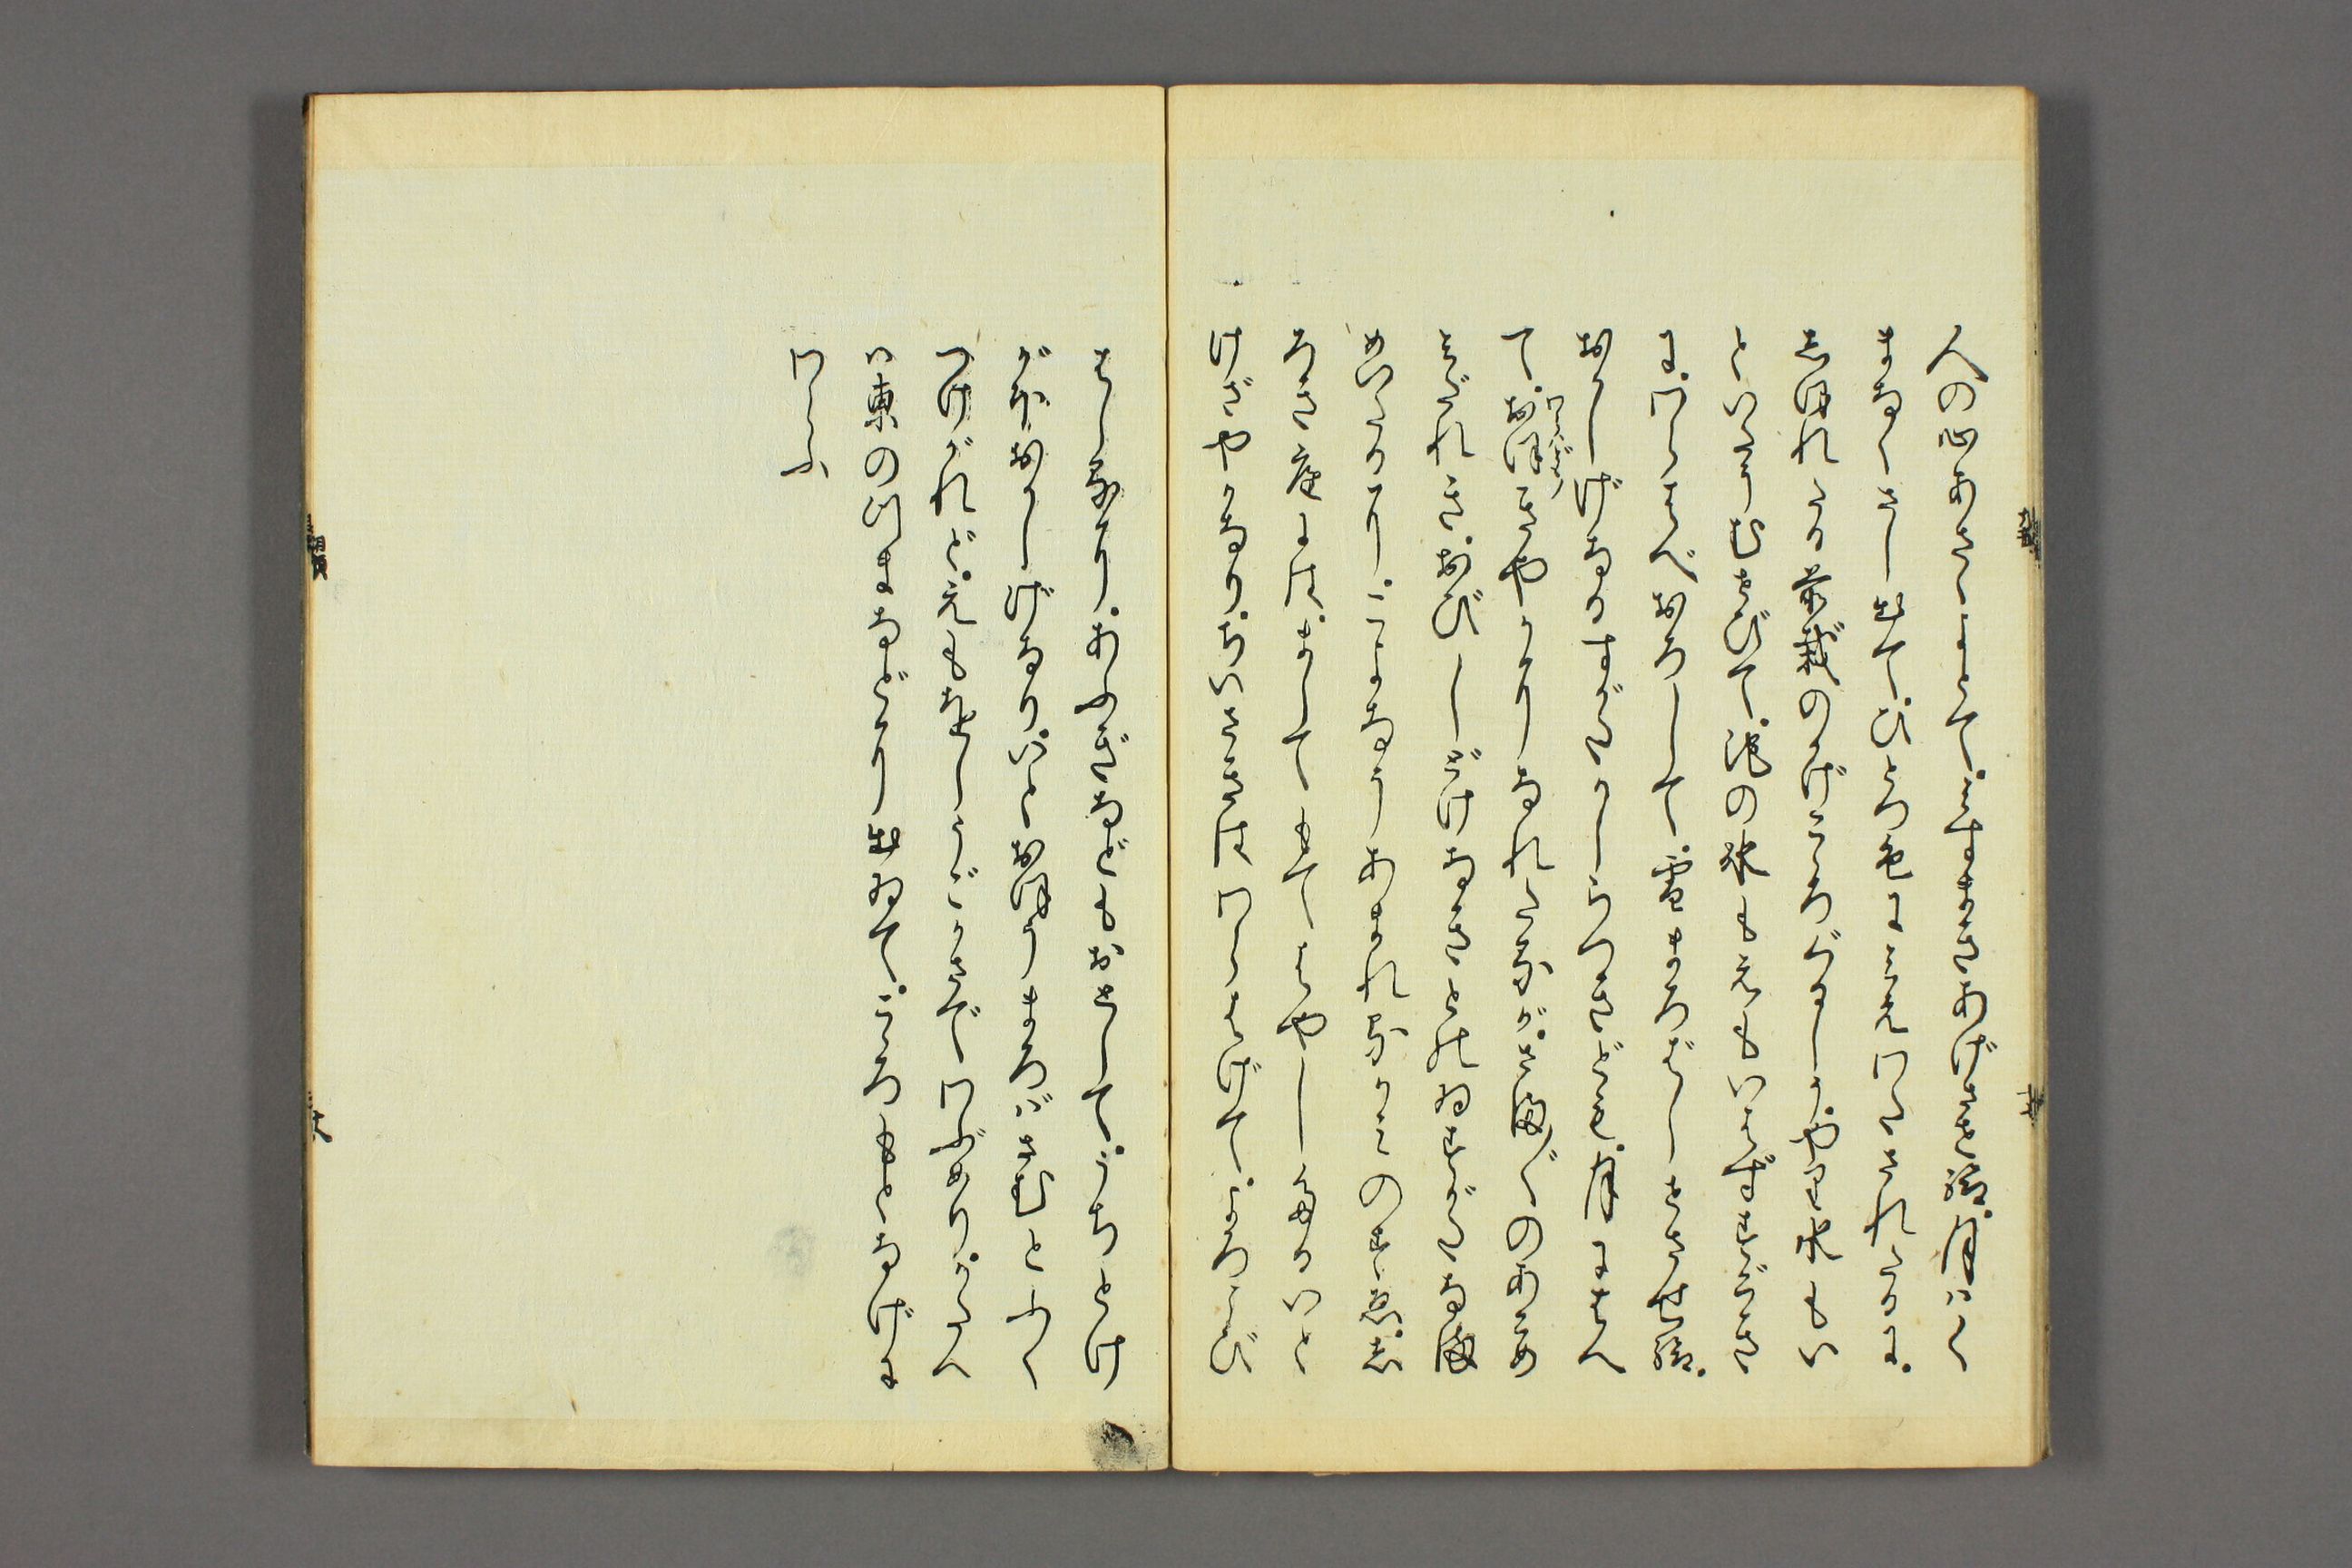 人の心あさゝよとて、みすまきあげさせ給。月はく
まなくさし出て、ひとつ色にみえわたされたるに、
しほれたる前栽のかげこゝろぐるしう、やり水もい
といたうむせびて、池の氷もえもいはずすごき
に、わらはべおろして、雪まろばしせさせ給。
おかしげなるすがたかしらつきども、月にはへ
て、おほきやかになれたるが、さま〴〵のあこめ
みだれき、おびしどけなきとのゐすがたなま
めいたるに、こよなうあまれるかみのすゑ、し
ろき庭には、ましてもてはやしたる、いと
けざやかなり。ちいさきは、わらはげて、よろこび
はしるに、あふぎなどもおとして、うちとけ
がほおかしげなり。いとおほうまろばさむと、ふく
つけがれど、えもをしうごかさでわぶめり。かたへ
は東のつまなどに出ゐて、こゝろもとなげに
わらふ